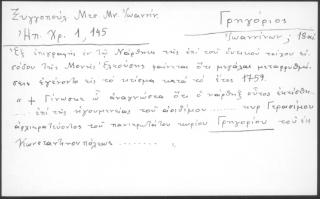 Ξυγγοπούλ. Μεσ. Μν. Ἰωαννίν.
Γρηγόριος
Ἠπ. Χρ. 1, 145
Ἰωαννίνων, 18 αἰ.
Ἐξ ἐπιγραφῆς ἐν τῷ Νάρθηκι τῆς ἐπὶ τοῦ δυτικοῦ τοίχου εἰσ-
όδου τῆς Μονῆς Ἐλεούσης φαίνεται ὅτι μεγάλαι μεταρρυθμί-
σεις ἐγένοντο εἰς τὸ κτίσμα κατὰ τὸ ἔτος 1759.
" + Γίνωσκε ὦ ἀναγνῶστα ὅτι ὁ νάρθηξ οὗτος ἐκτίσθη...
.... ἐπὶ τῆς ἡγουμενείας τοῦ ἀοιδίμου ..... κυρ Γερασίμου
ἀρχιερατεύοντος τοῦ πανιερωτάτου κυρίου Γρηγορίου τοῦ ἐκ
Κωνσταντινουπόλεως .........